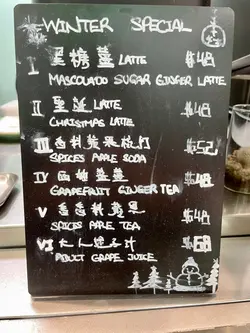 WINTER SPECIAL
I 黑糖薑 LATTE $48
MASCOLADO SUGAR GINGER LATTE
II 聖誕 LATTE $48
CHRISTMAS LATTE
III 香料蘋果梳打 $52
SPICES APPLE SODA
IV 西柚薑 $48
GRAPEFRUIT GINGER TEA
V 香料蘋果 $48
SPICES APPLE TEA
VI $68
ADULT GRAPE JUICE